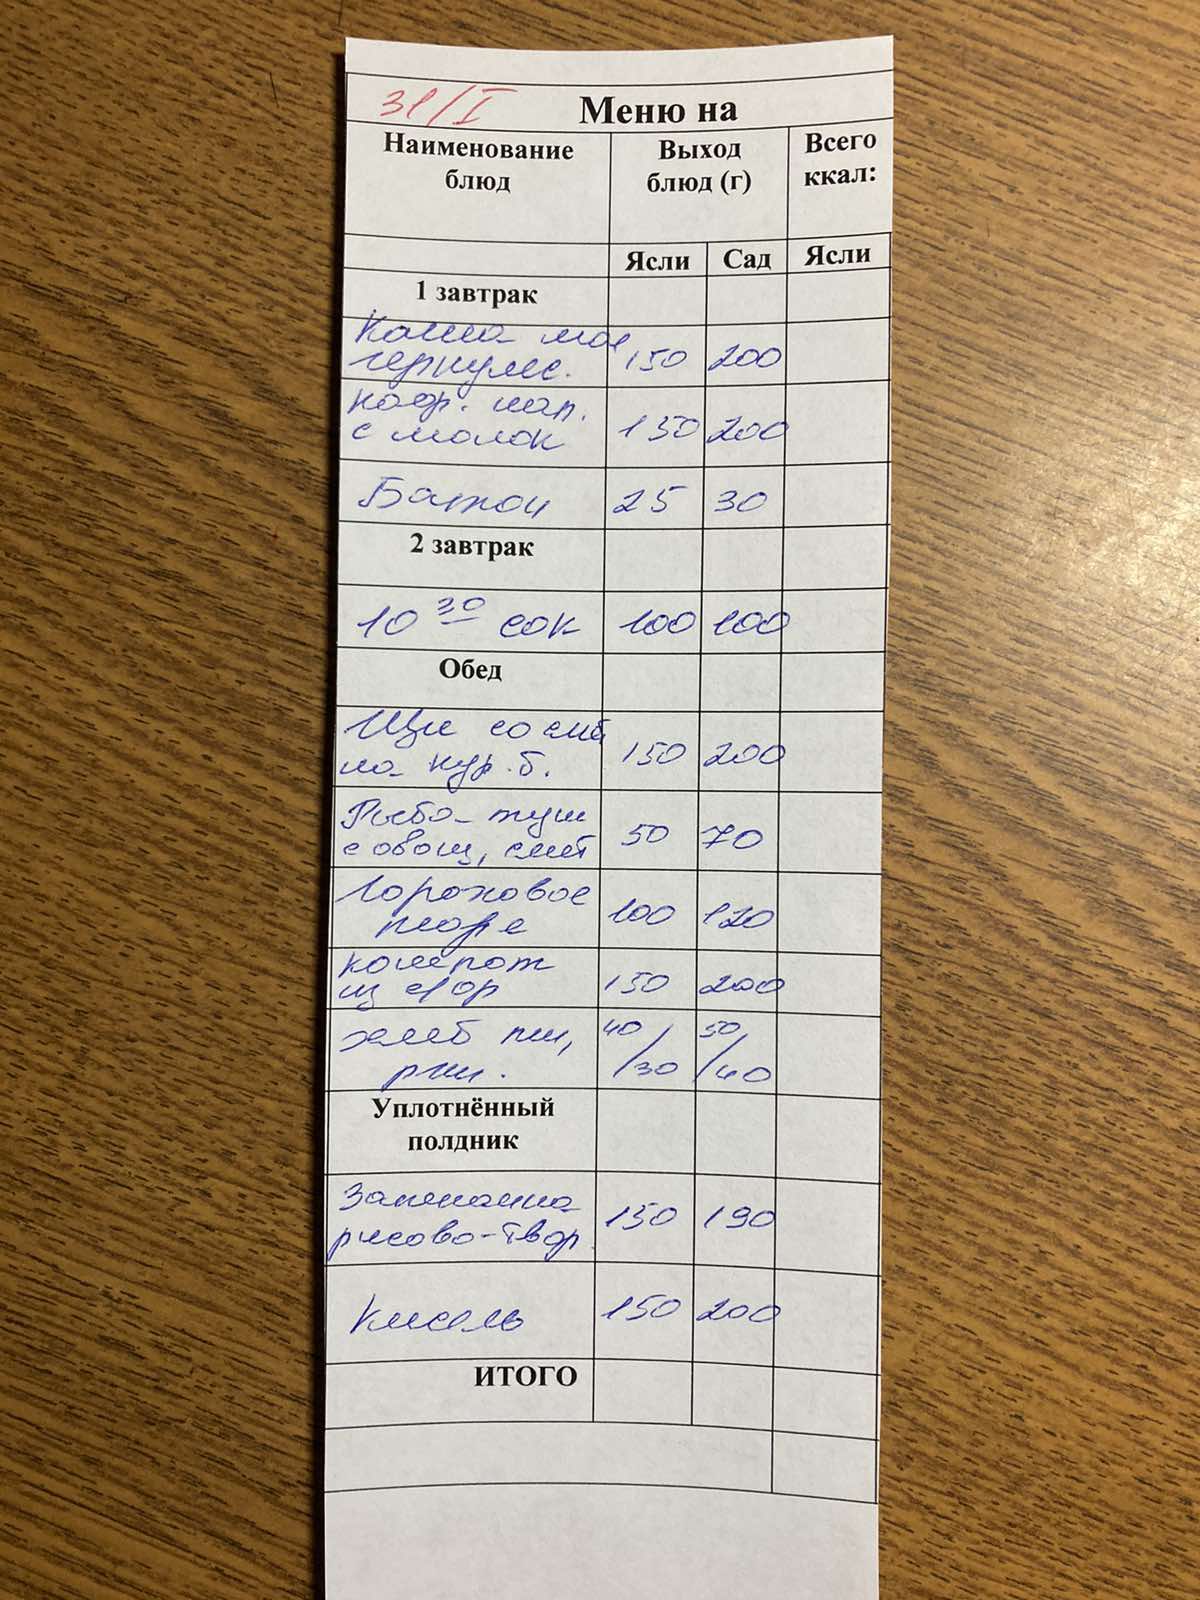 31/I Меню на
Наименование блюд Выход блюд (г) Всего ккал:
Ясли Сад Ясли
1 завтрак
Каша мол
геркулес. 150 200
коф. нап.
с молок 150 200
Батон 25 30
2 завтрак
10 30 сок 100 100
Обед
Щи со смет
на кур. б. 150 200
Рыба туш
с овощ, смет 50 70
Гороховое
пюре 100 120
компот
из с/фр 150 200
хлеб пш,
рж. 40/30 50/40
Уплотнённый
полдник
Запеканка
рисово-твор 150 190
Кисель 150 200
ИТОГО